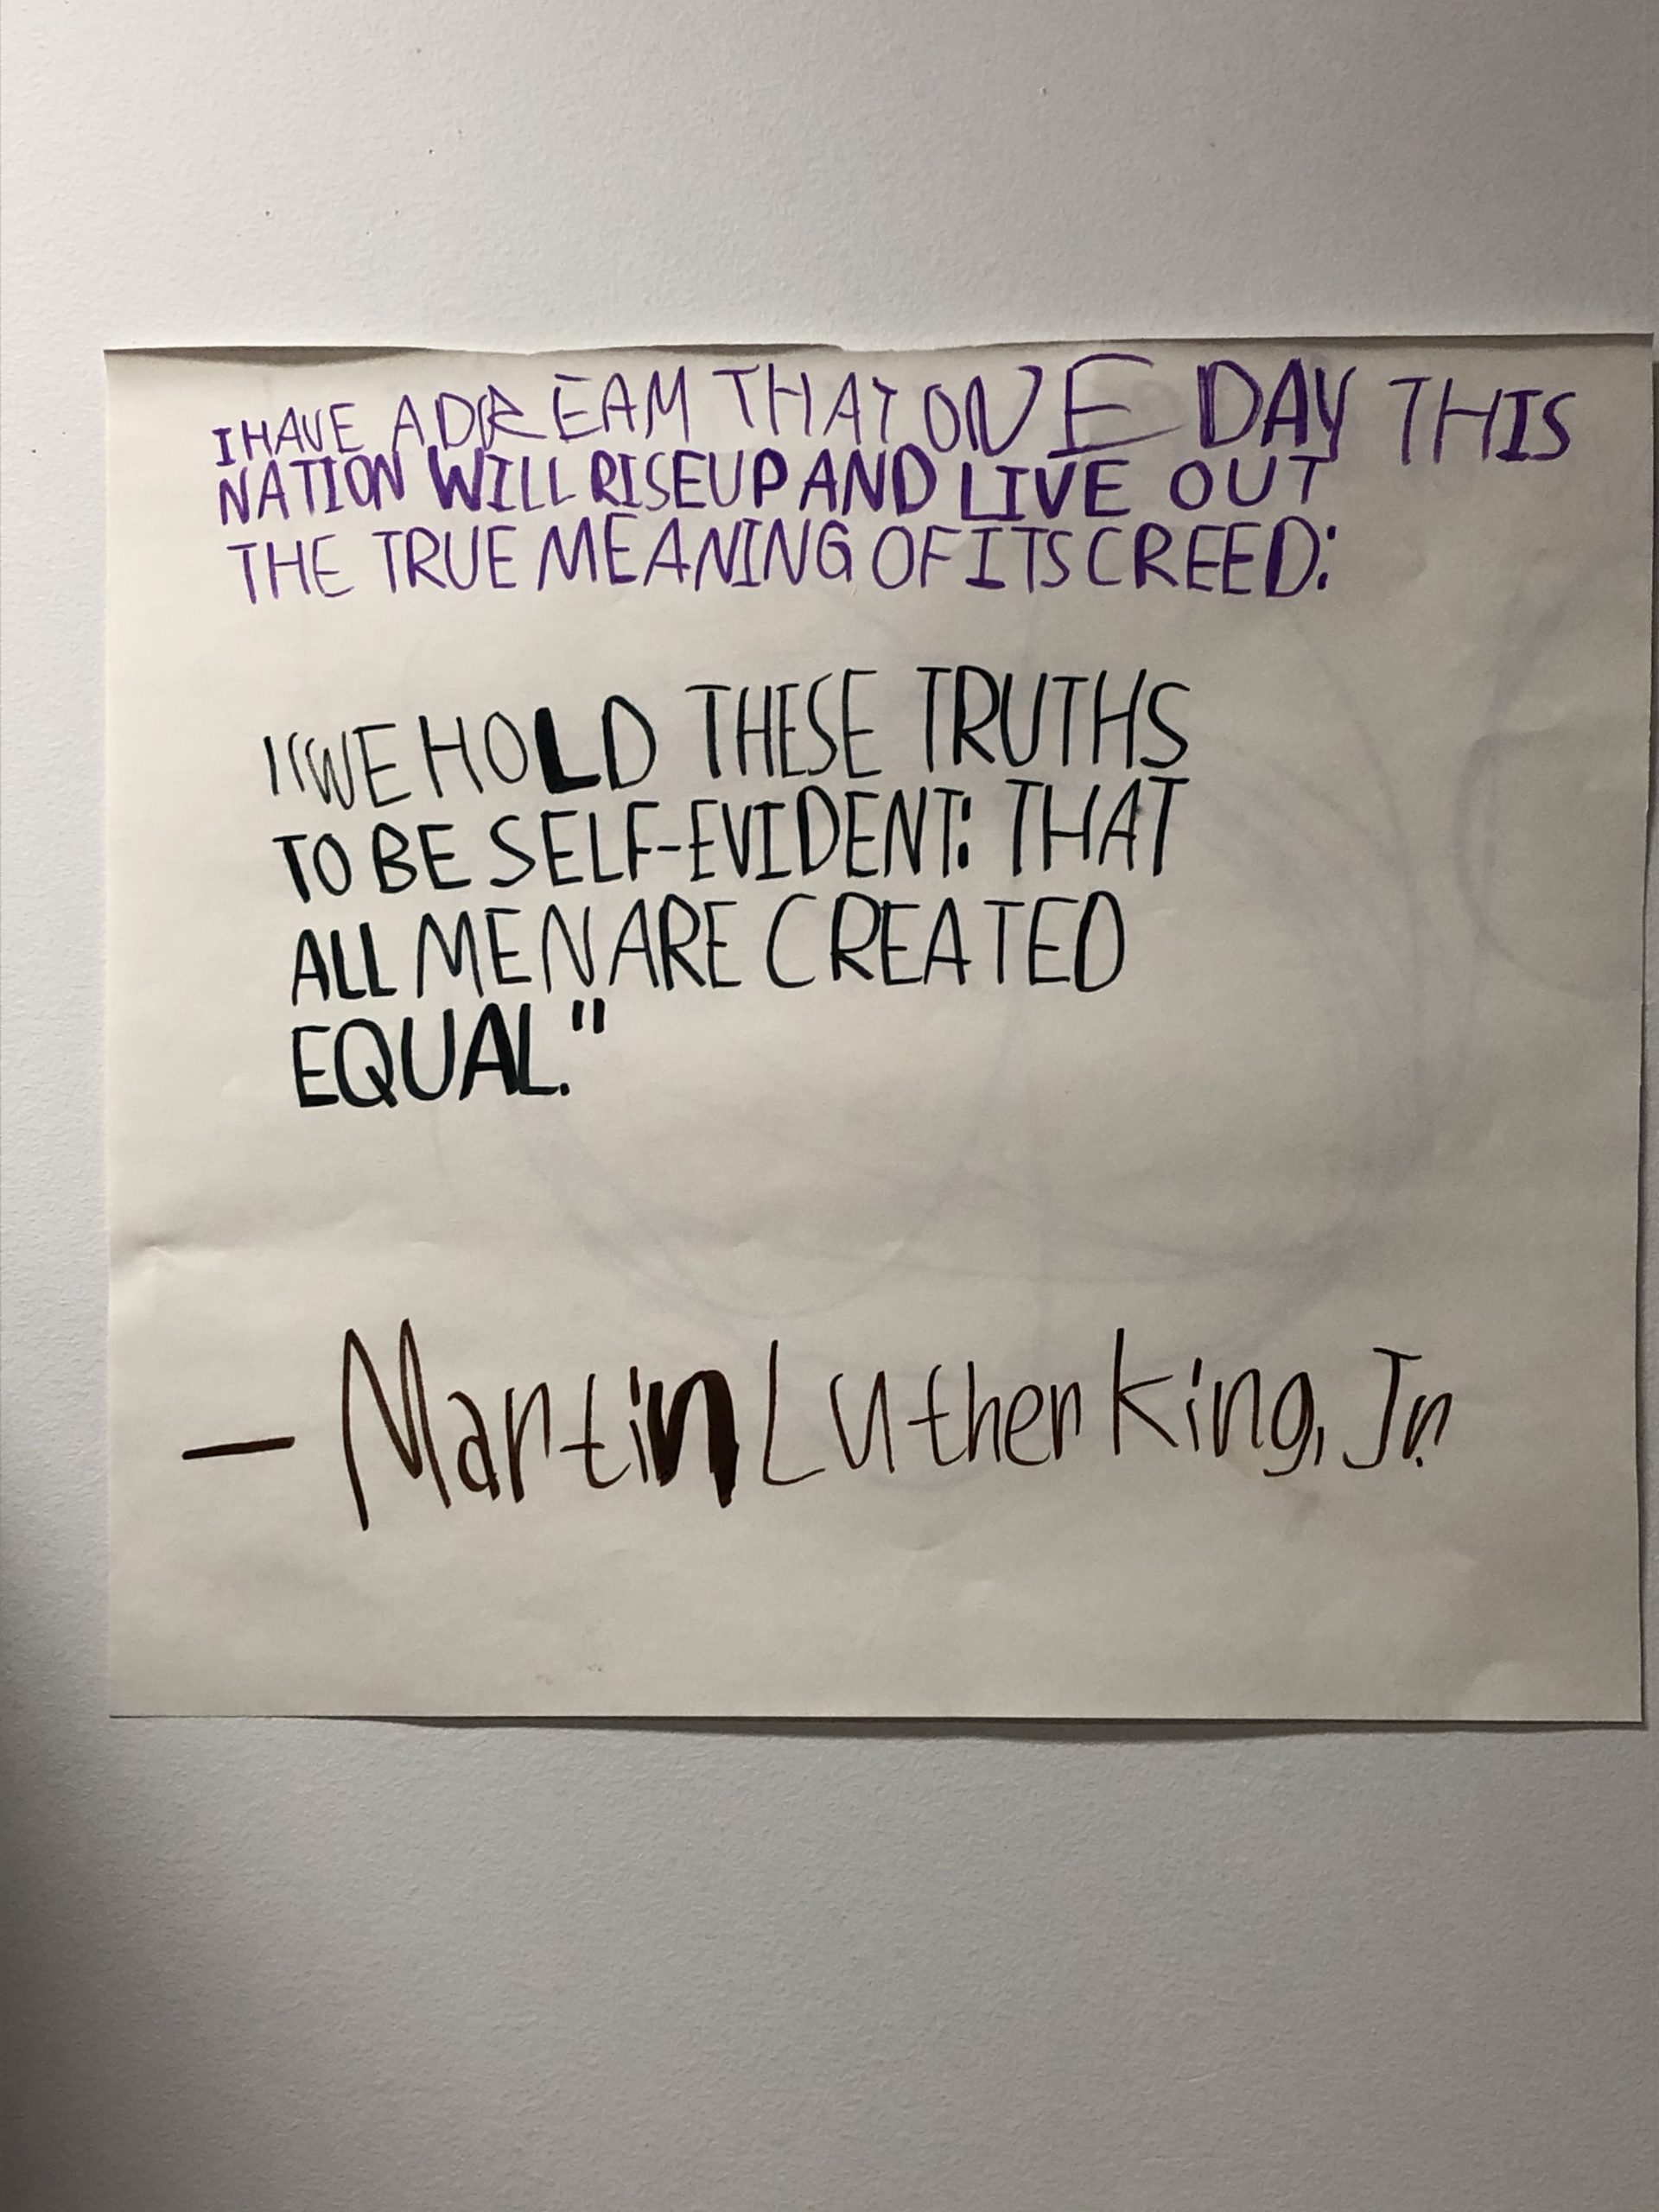 I HAVE A DREAM THAT ONE DAY THIS
NATION WILL RISE UP AND LIVE OUT
THE TRUE MEANING OF ITS CREED:
"WE HOLD THESE TRUTHS
TO BE SELF-EVIDENT: THAT
ALL MEN ARE CREATED
EQUAL."
— Martin Luther King, Jr.